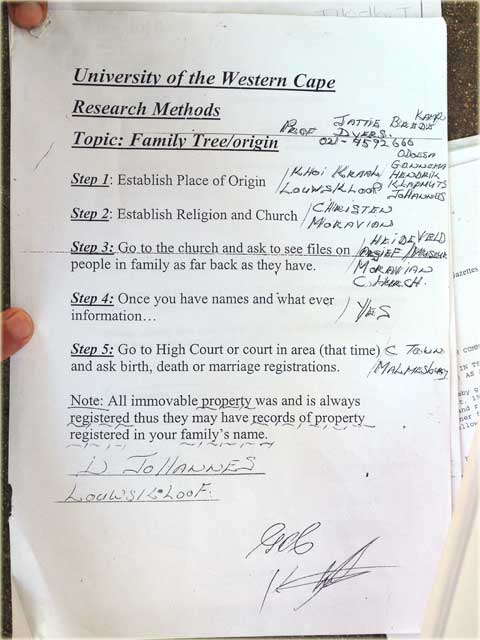 University of the Western Cape
Research Methods
PROF JATTIE BREDE KAMP
DYERS.
Topic: Family Tree/origin
021-9592666
ODOESA
GONNEMA
HENDRIK
KLAPMUTS
JOHANNES
Step 1: Establish Place of Origin / KHOI KRAAL
LOUWSKLOOF
Step 2: Establish Religion and Church / CHRISTEN
MORAVIAN
Step 3: Go to the church and ask to see files on / HEIDEVELD
people in family as far back as they have.
MORAVIAN
CHURCH.
Step 4: Once you have names and what ever / YES
information…
Step 5: Go to High Court or court in area (that time) C TOWN
and ask birth, death or marriage registrations. / MALMESBURY
Note: All immovable property was and is always
registered thus they may have records of property
registered in your family's name.
JOHANNES
LOUWSKLOOF.